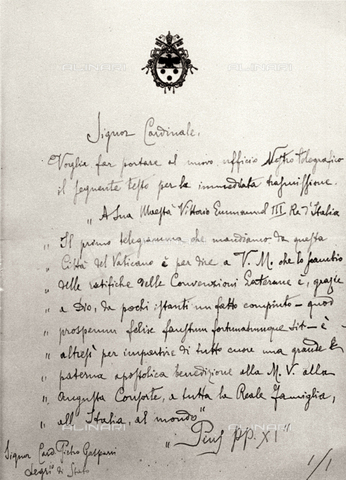 Signor Cardinale,
Voglia far portare al nuovo ufficio Nostro telegrafico
il seguente testo per la immediata trasmissione.
"A Sua Maestà Vittorio Emmanuel III Re d'Italia
" Il primo telegramma che mandiamo da questa
" Città del Vaticano è per dire a V. M. che lo scambio
" delle ratifiche delle Convenzioni Laterane è, grazie
" a Dio, da pochi istanti un fatto compiuto - quod
" prosperum felix faustum fortunatumque sit - è
" altresì per impartire di tutto cuore una grande e
" paterna apostolica benedizione alla M. V. alla
" Augusta Consorte, a tutta la Reale Famiglia,
" all'Italia, al mondo"
"Pius PP. XI"
Signor Card. Pietro Gasparri
Segr. di Stato
1/1
ALINARI
ALINARI